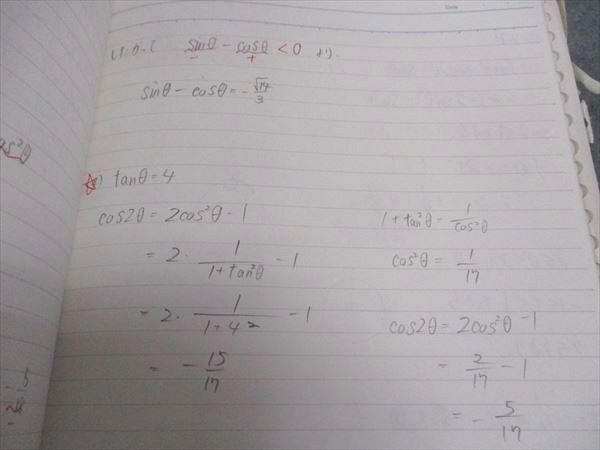 sinθ - cosθ < 0 より
- +
sinθ - cosθ = -√14/3
tanθ = 4
cos2θ = 2cos²θ - 1
= 2 · 1/(1+tan²θ) - 1
= 2 · 1/(1+4²) - 1
= -15/17
1 + tan²θ = 1/cos²θ
cos²θ = 1/17
cos2θ = 2cos²θ - 1
= 2/17 - 1
= -5/17